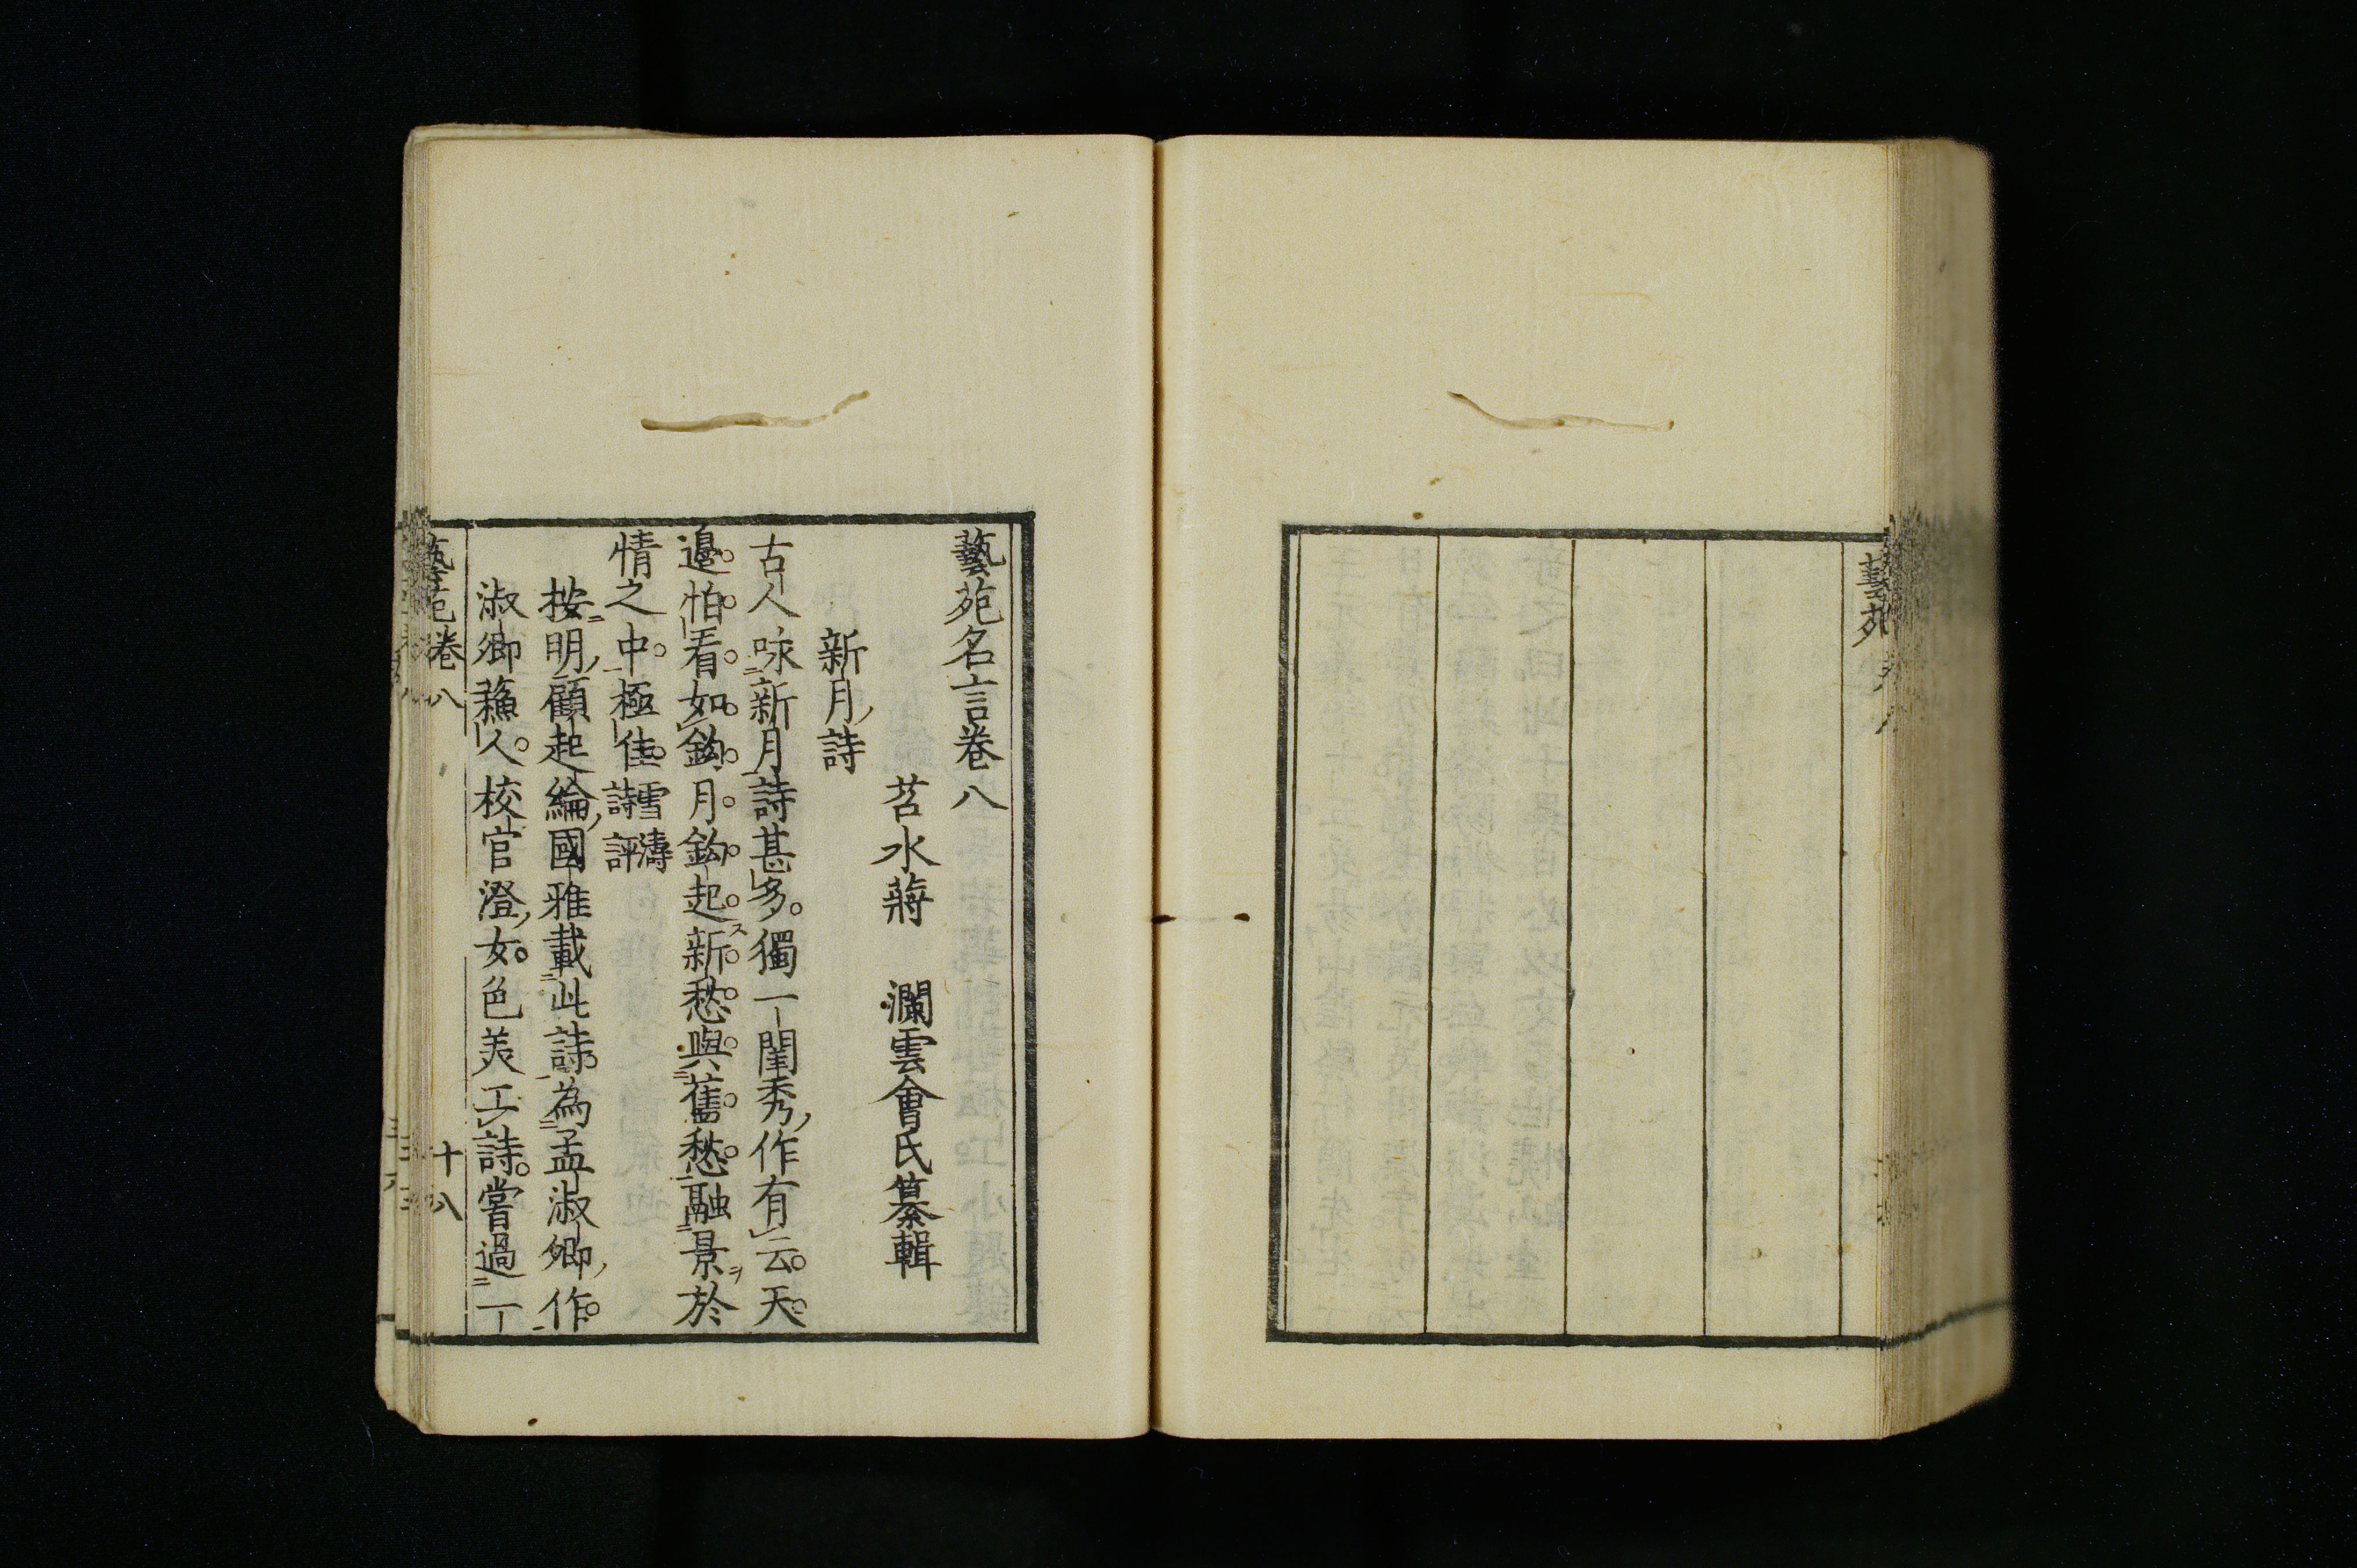 藝苑
藝苑名言卷八
苕水蔣 瀾雲會氏纂輯
新月詩
古人咏新月詩甚多。獨一閨秀作有云。天
邉。怕。看。如。鈎。月。鈎。起。新。愁。與。舊。愁。融景於
情之中。極佳。雪濤詩評
按明顧起綸國雅載此詩。為孟淑卿作。
淑卿蘓人。校官澄女。色美工詩。嘗過一
藝苑卷八 十八